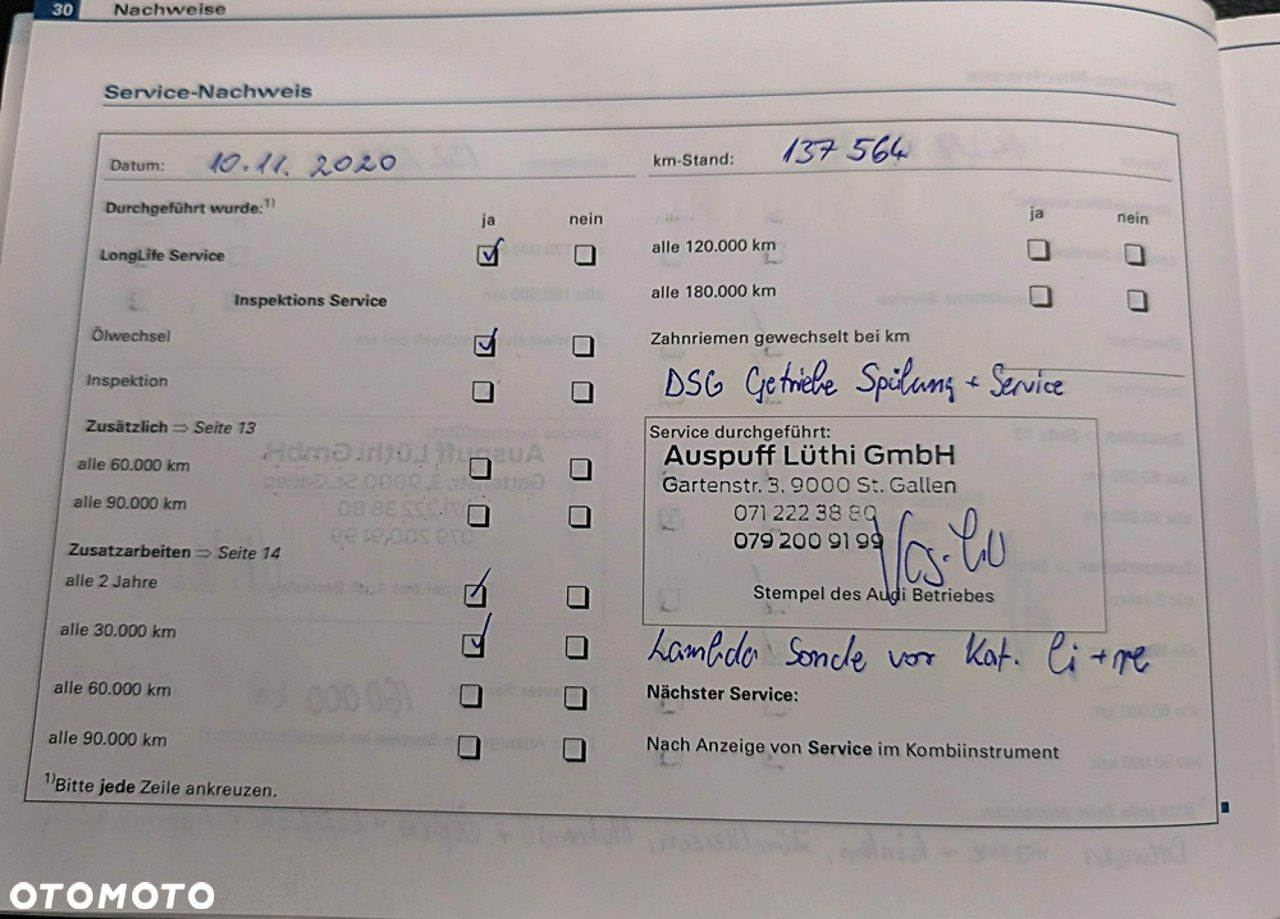 30 Nachweise
Service-Nachweis
Datum: 10.11. 2020
Durchgeführt wurde:1)
ja nein
LongLife Service
Inspektions Service
Ölwechsel
Inspektion
Zusätzlich ⇒ Seite 13
alle 60.000 km
alle 90.000 km
Zusatzarbeiten ⇒ Seite 14
alle 2 Jahre
alle 30.000 km
alle 60.000 km
alle 90.000 km
1)Bitte jede Zeile ankreuzen.
km-Stand: 137 564
ja nein
alle 120.000 km
alle 180.000 km
Zahnriemen gewechselt bei km
DSG Getriebe Spülung + Service
Service durchgeführt:
Auspuff Lüthi GmbH
Gartenstr. 3, 9000 St. Gallen
071 222 38 80
079 200 91 99
Stempel des Audi Betriebes
Lambda Sonde vor Kat. li + re
Nächster Service:
Nach Anzeige von Service im Kombiinstrument
OTOMOTO